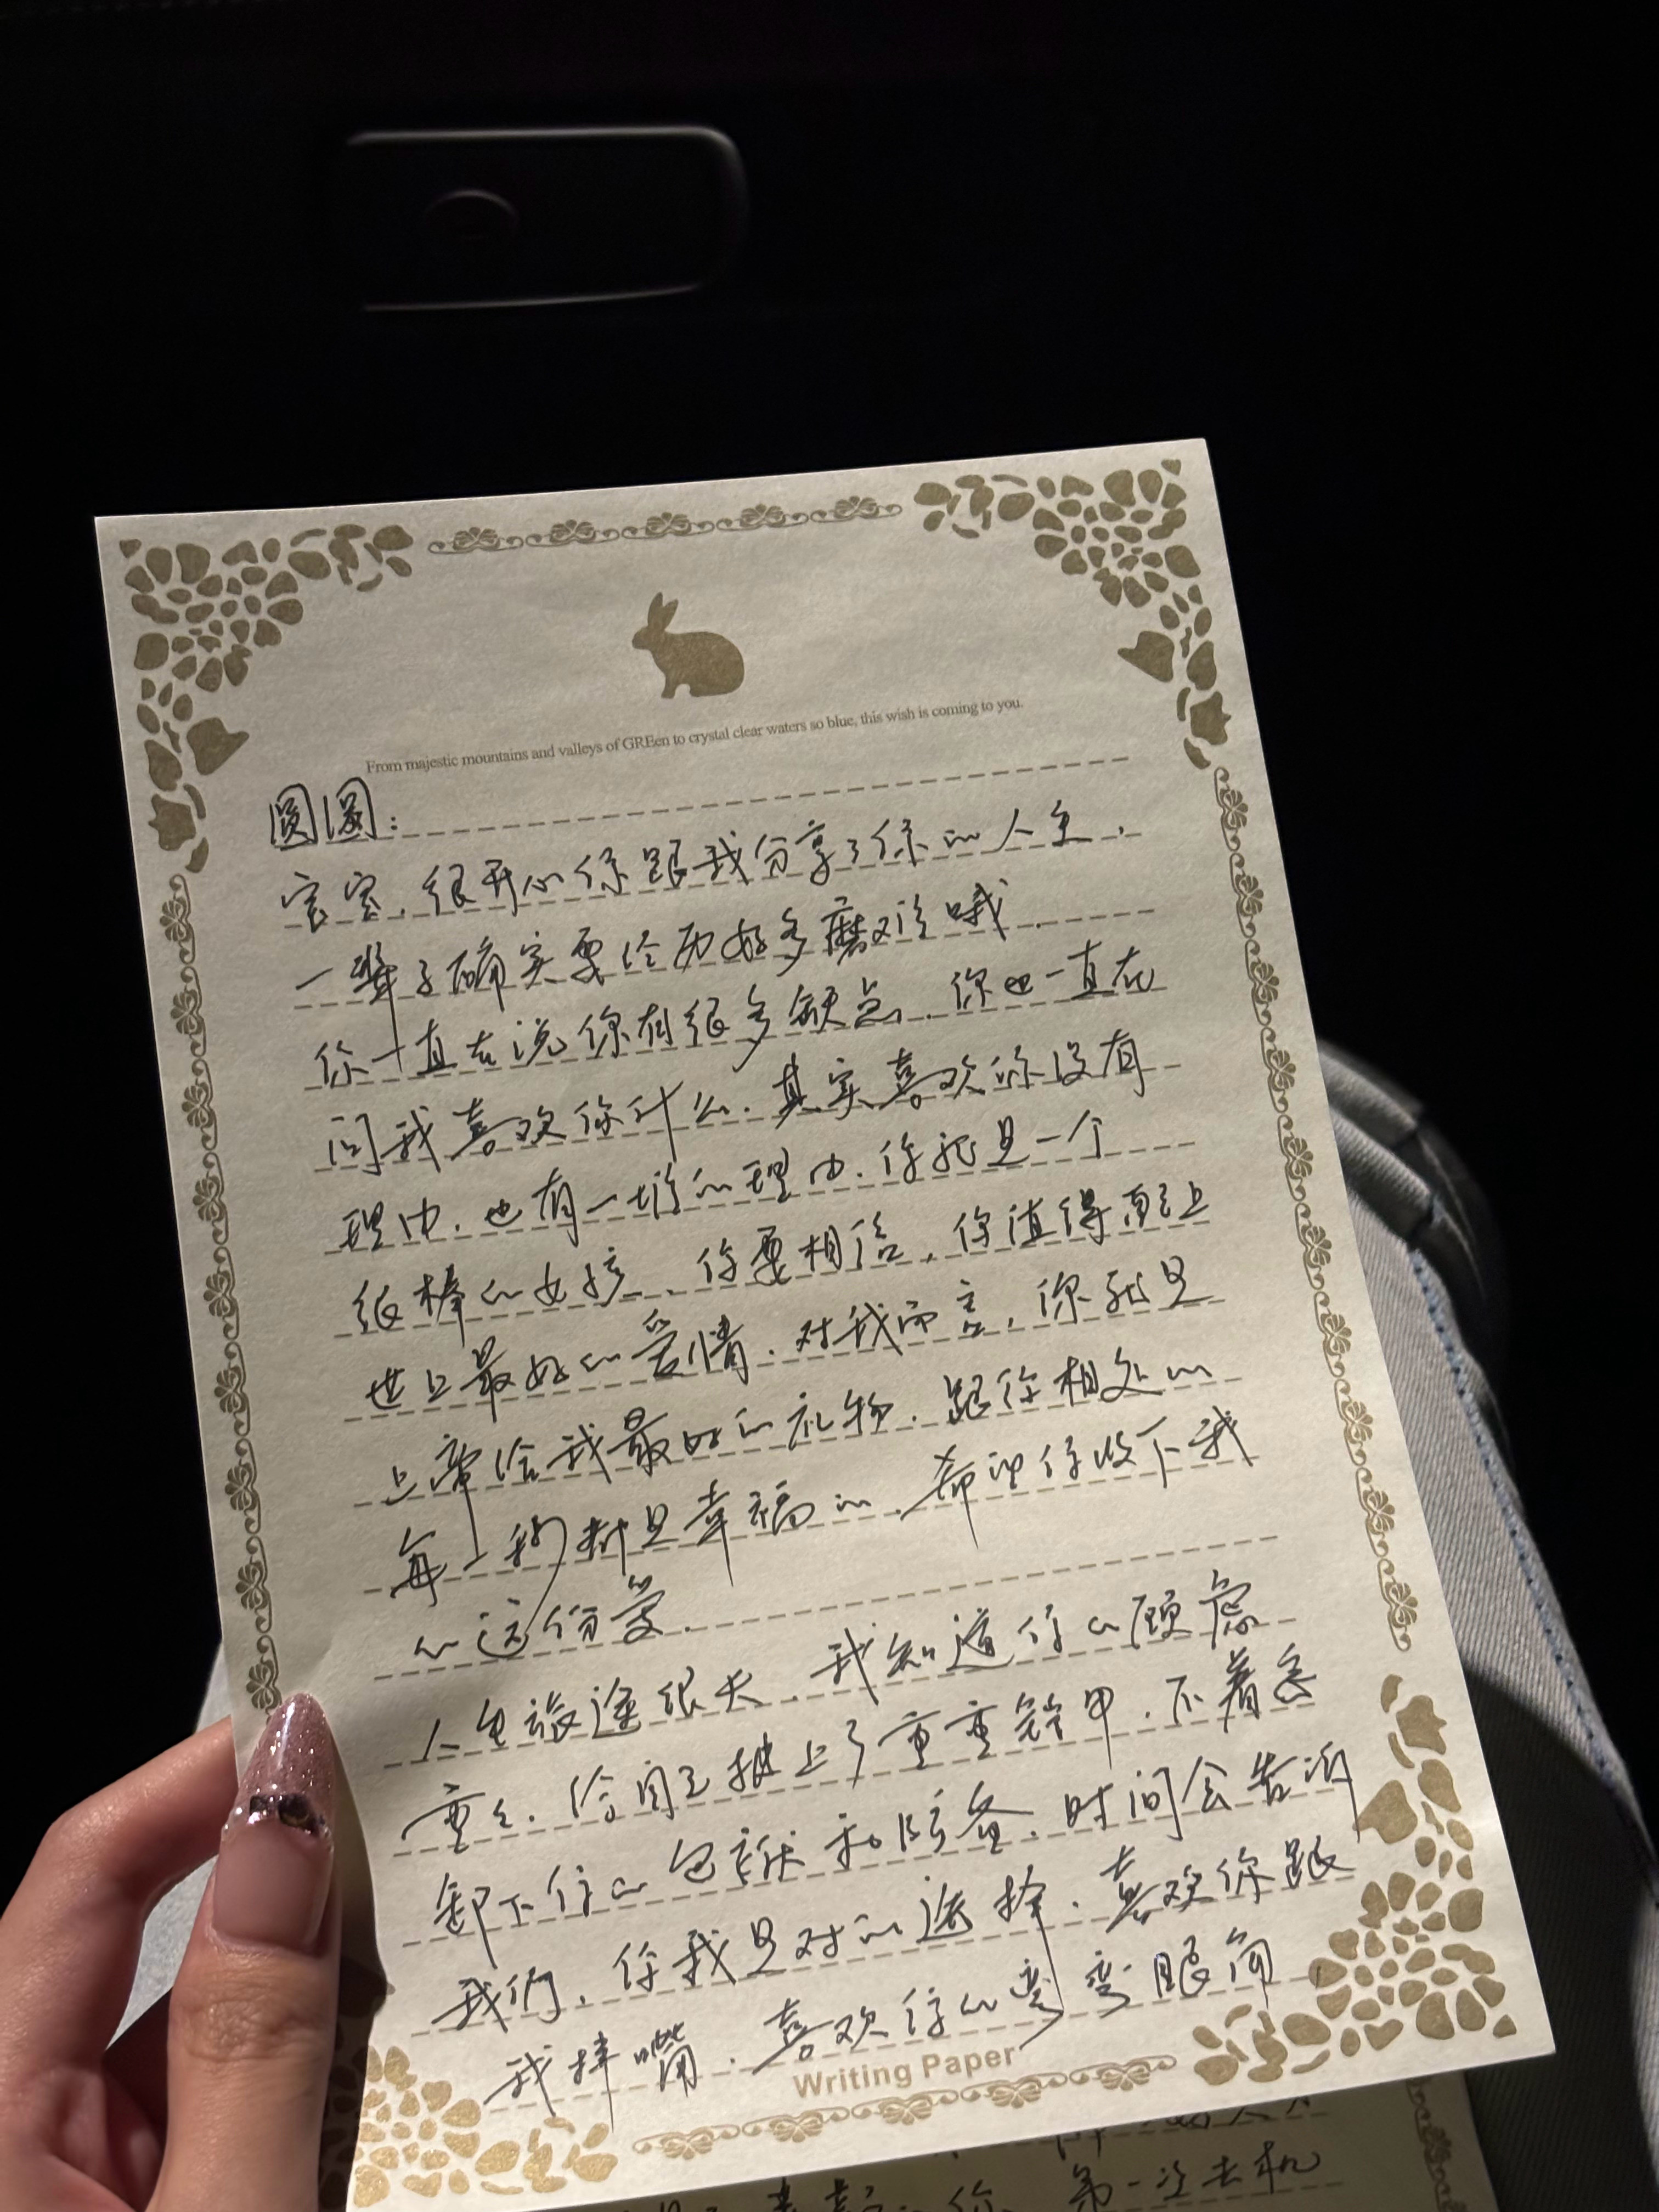 From majestic mountains and valleys of GREen to crystal clear waters so blue, this wish is coming to you.
圆圆：
宝宝，很开心你跟我分享了你的人生，
一辈子确实要经历好多磨难哦．
你一直在说你有很多缺点，你也一直在
问我喜欢你什么．其实喜欢你没有
理由．也有一堆的理由．你就是一个
很棒的女孩，你要相信，你值得配上
世上最好的爱情．对我而言，你就是
上帝给我最好的礼物．跟你相处的
每一秒都是幸福的．希望你收下我
的这份爱．
人生旅途很长，我知道你的顾虑
重重．给自己披上了重重铠甲．不着急
卸下你的包袱和防备．时间会告诉
我们，你我是对的选择．喜欢你跟
我拌嘴．喜欢你的弯弯眼角
Writing Paper
你 第一次去机